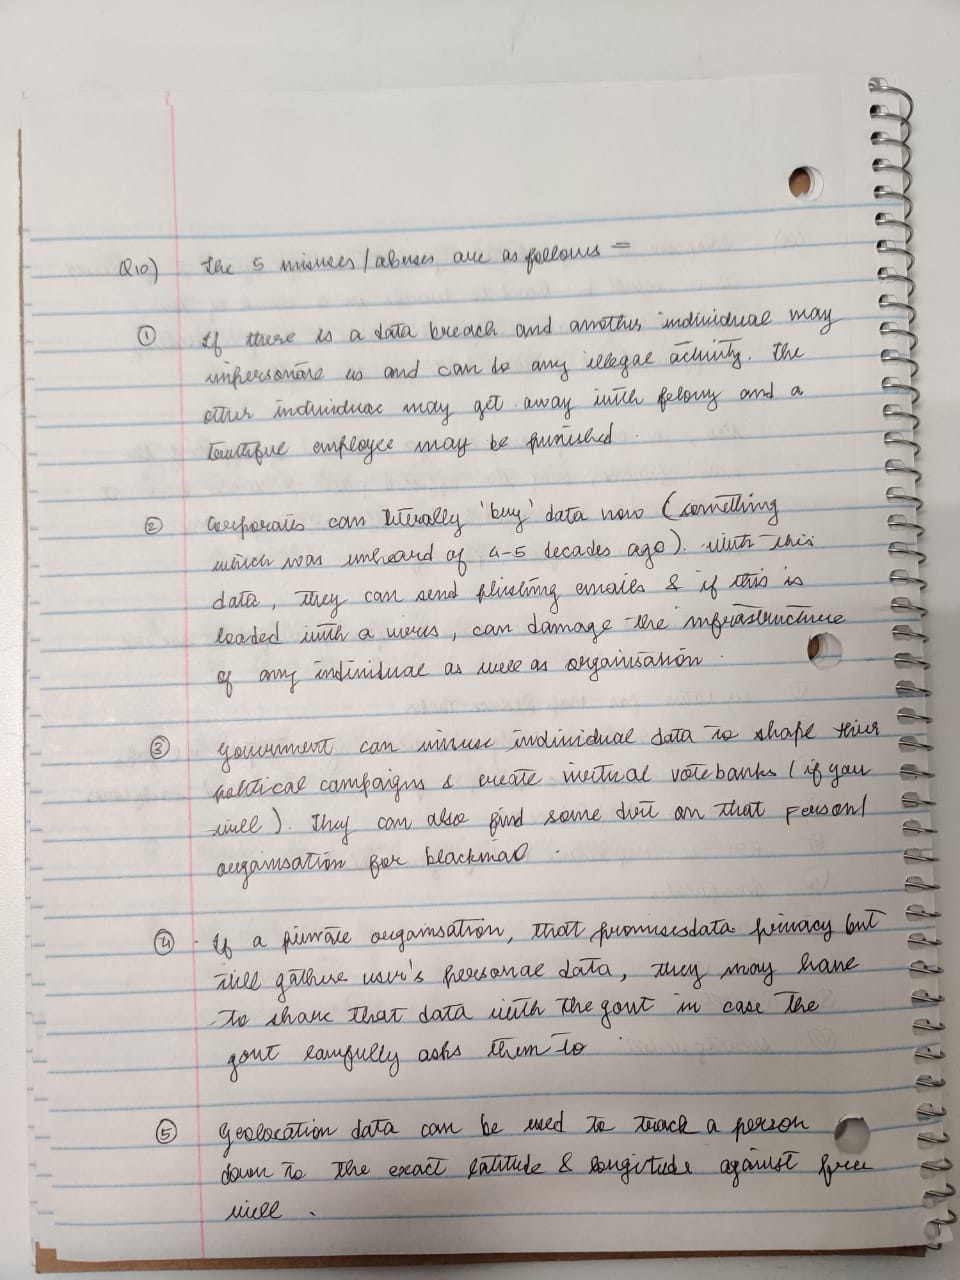 Q10) The 5 misuses/abuses are as follows =
① If there is a data breach and another individual may
impersonate us and can do any illegal activity. The
other individual may get away with felony and a
employee may be punished.
② Corporates can literally 'buy' data now (something
which was unheard of 4-5 decades ago). With this
data, they can send phishing emails & if this is
loaded with a virus, can damage the infrastructure
of any individual as well as organisation.
③ Government can misuse individual data to shape their
political campaigns & create virtual votebanks (if you
will). They can also find some dirt on that person/
organisation for blackmail.
④ If a private organisation, that promises data privacy but
still gathers user's personal data, they may have
to share that data with the govt in case the
govt lawfully asks them to
⑤ Geolocation data can be used to track a person
down to the exact latitude & longitude against free
will.